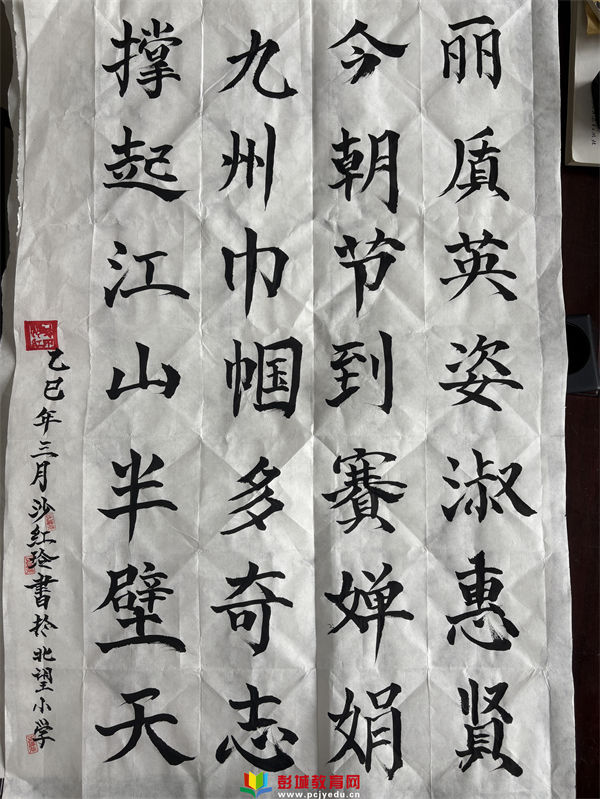 丽质英姿淑惠贤
今朝节到赛婵娟
九州巾帼多奇志
撑起江山半壁天
乙巳年三月沙红玲书于北望小学
彭城教育网
www.pcjyedu.cn